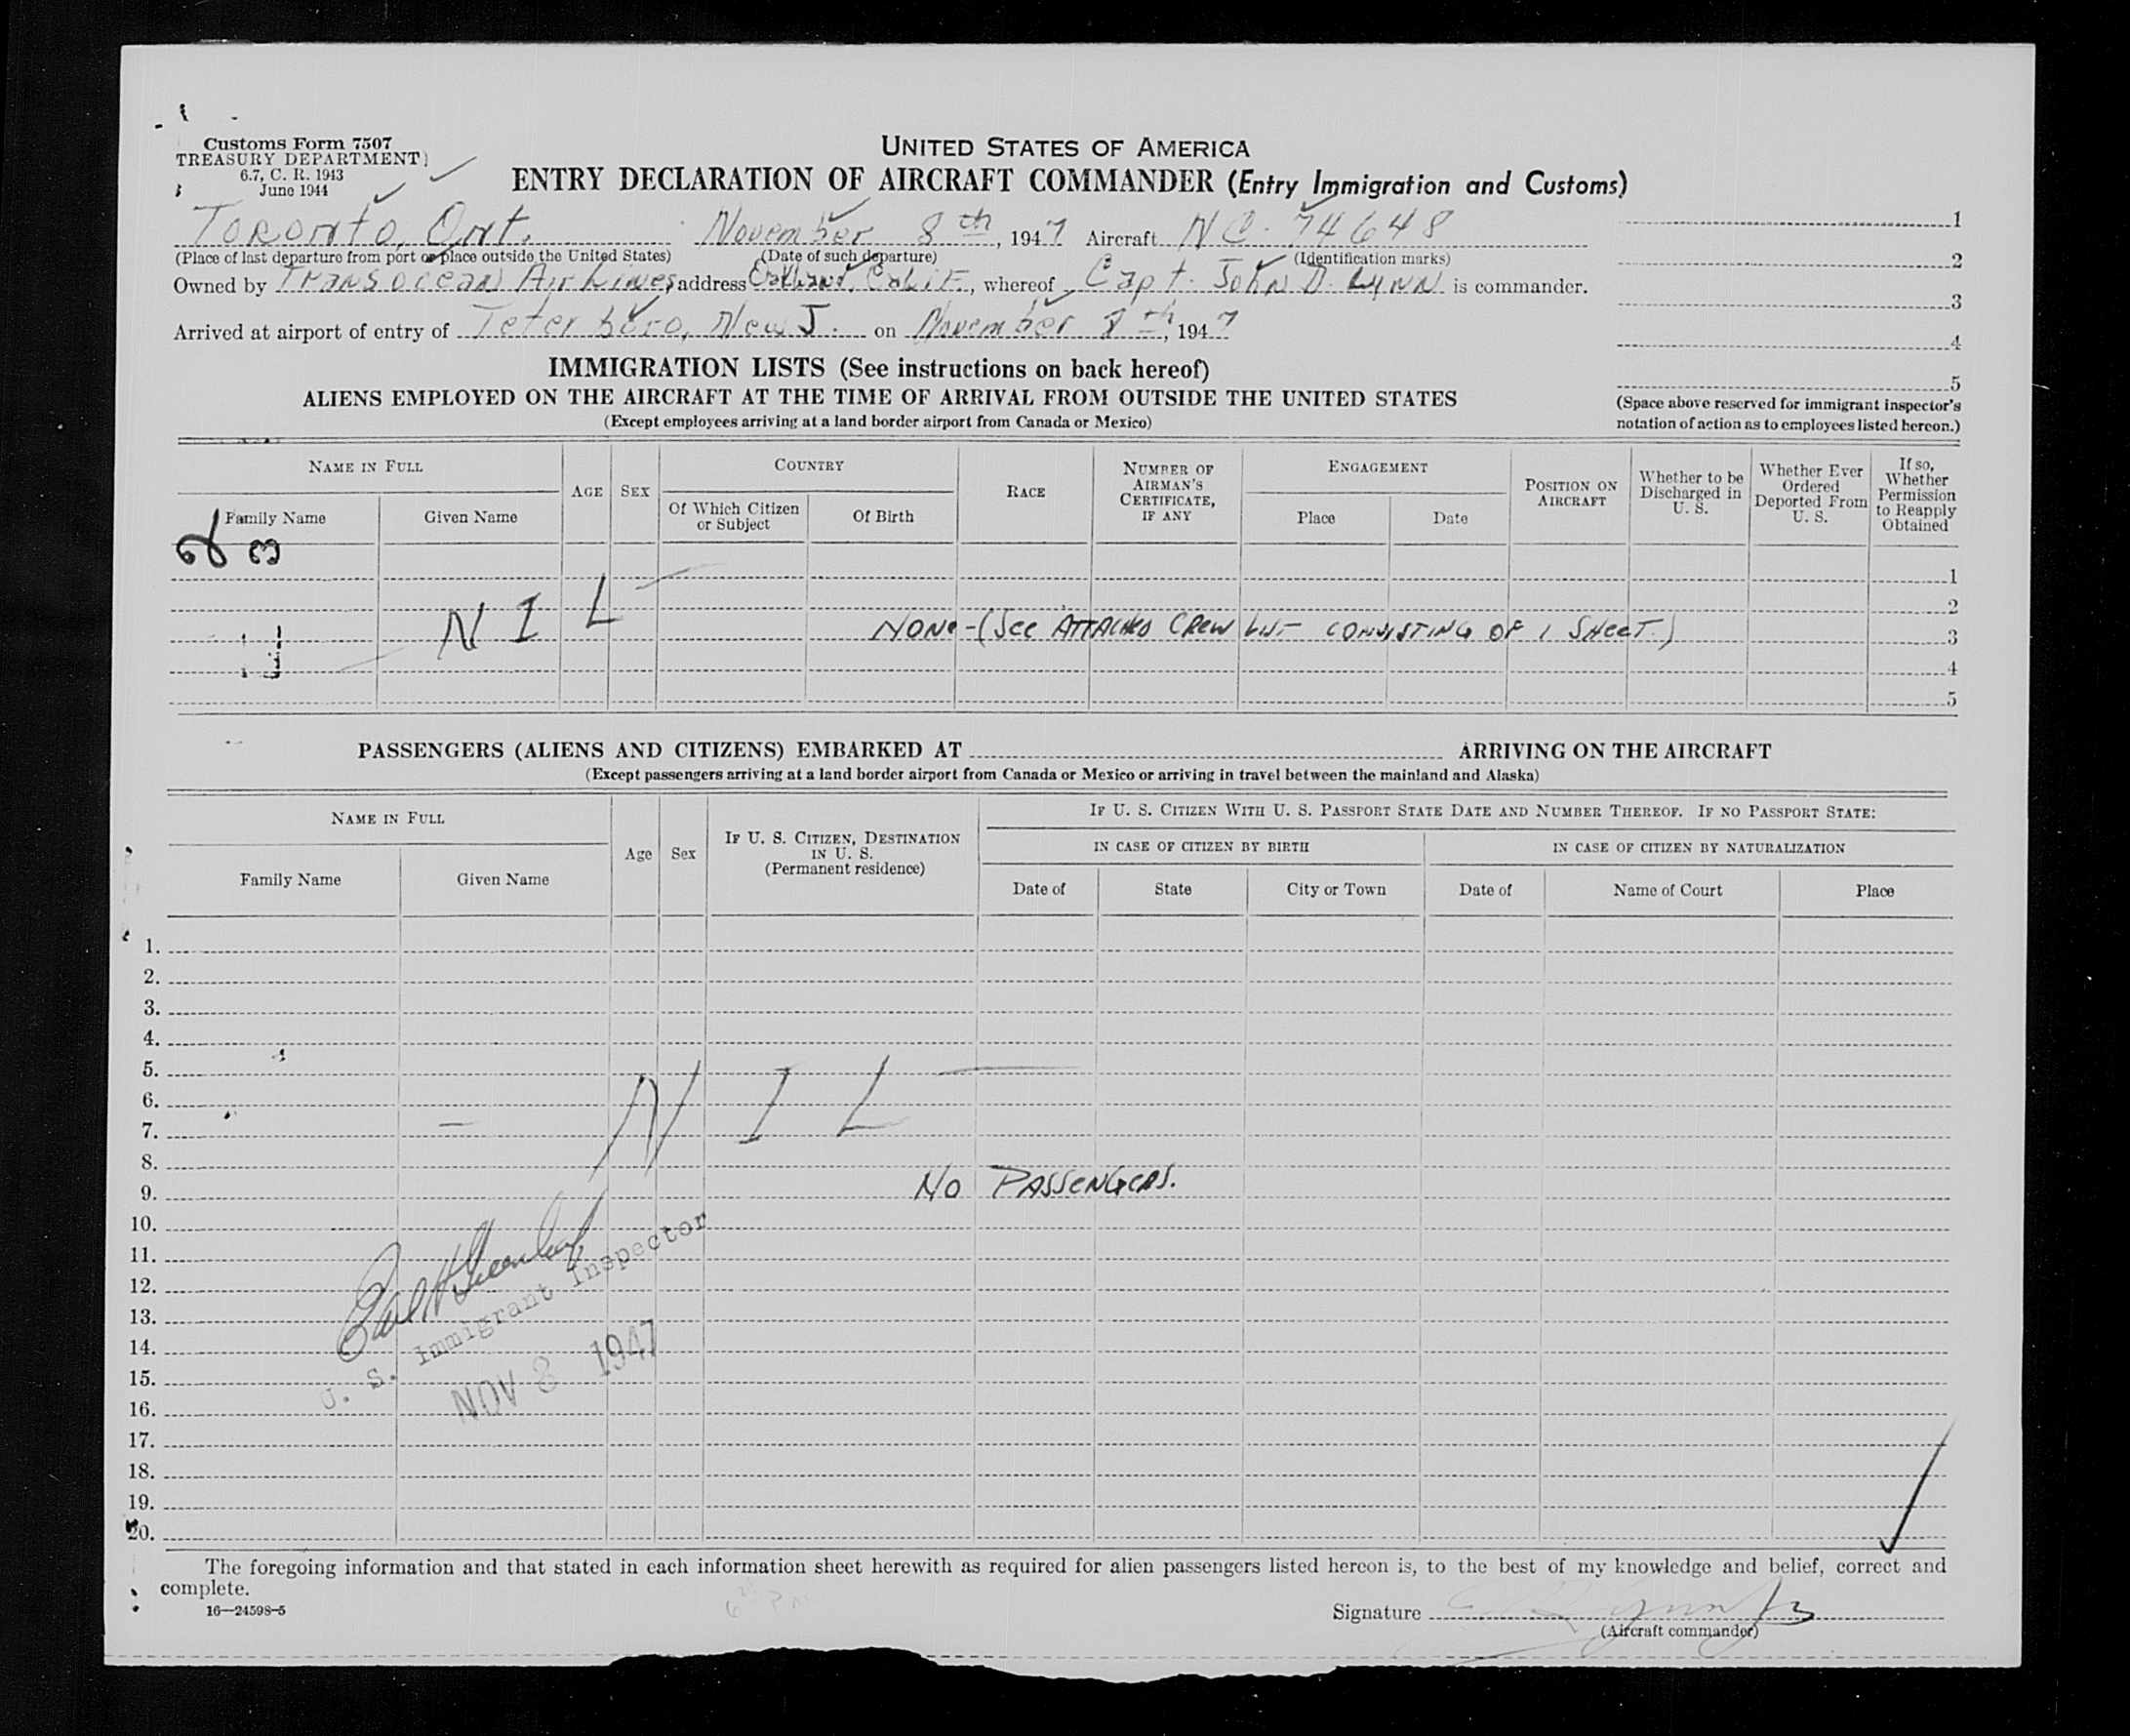 Customs Form 7507
TREASURY DEPARTMENT
6.7, C. R. 1943
June 1944
UNITED STATES OF AMERICA
ENTRY DECLARATION OF AIRCRAFT COMMANDER (Entry Immigration and Customs)
Toronto, Ont. November 8th, 1947 Aircraft NC-74648
(Place of last departure from port or place outside the United States) (Date of such departure) (Identification marks)
Owned by Transocean Air Lines, address Oakland, Calif., whereof Capt. John D. Lynn is commander.
Arrived at airport of entry of Teterboro, New J. on November 8th, 1947
1
2
3
4
5
(Space above reserved for immigrant inspector's
notation of action as to employees listed hereon.)
IMMIGRATION LISTS (See instructions on back hereof)
ALIENS EMPLOYED ON THE AIRCRAFT AT THE TIME OF ARRIVAL FROM OUTSIDE THE UNITED STATES
(Except employees arriving at a land border airport from Canada or Mexico)
NAME IN FULL
Family Name Given Name
AGE
SEX
COUNTRY
Of Which Citizen or Subject
Of Birth
RACE
NUMBER OF AIRMAN'S CERTIFICATE, IF ANY
ENGAGEMENT
Place Date
POSITION ON AIRCRAFT
Whether to be Discharged in U. S.
Whether Ever Ordered Deported From U. S.
If so, Whether Permission to Reapply Obtained
1
2
NIL
NONE - (SEE ATTACHED CREW LIST CONSISTING OF 1 SHEET.) 3
4
5
PASSENGERS (ALIENS AND CITIZENS) EMBARKED AT ARRIVING ON THE AIRCRAFT
(Except passengers arriving at a land border airport from Canada or Mexico or arriving in travel between the mainland and Alaska)
NAME IN FULL
Family Name Given Name
Age
Sex
IF U. S. CITIZEN, DESTINATION IN U. S.
(Permanent residence)
IF U. S. CITIZEN WITH U. S. PASSPORT STATE DATE AND NUMBER THEREOF. IF NO PASSPORT STATE:
IN CASE OF CITIZEN BY BIRTH IN CASE OF CITIZEN BY NATURALIZATION
Date of State City or Town Date of Name of Court Place
1.
2.
3.
4.
5.
6.
7. - NIL -
8.
9. NO PASSENGERS.
10.
11.
12.
13.
14.
15.
16.
17.
18.
19.
20.
U. S. Immigrant Inspector
NOV 8 1947
The foregoing information and that stated in each information sheet herewith as required for alien passengers listed hereon is, to the best of my knowledge and belief, correct and
complete.
16—24598-5
Signature
(Aircraft commander)